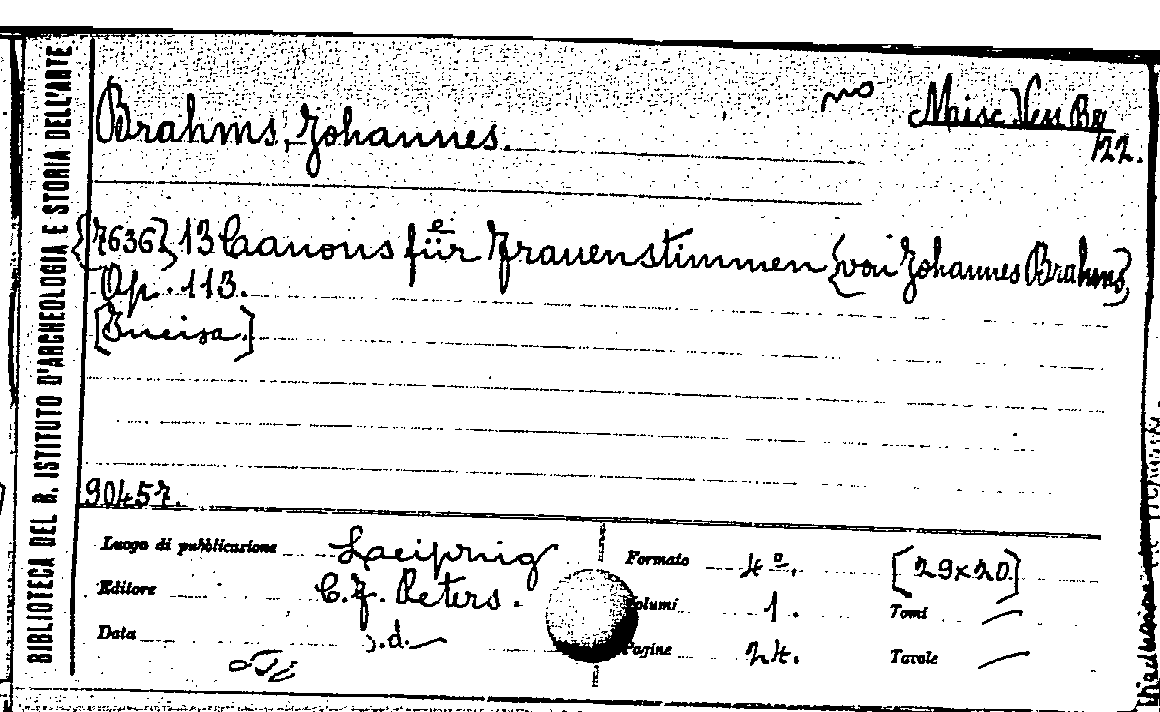 BIBLIOTECA DEL R. ISTITUTO D'ARCHEOLOGIA E STORIA DELL'ARTE
Brahms, Johannes.
Misc. Ven Br
/22.
{7636} 13 Canons für Frauenstimmen {von Johannes Brahms}
Op. 113.
90457.
Luogo di pubblicazione Laeipzig
Formato 4º. [29x20]
Editore C. F. Peters.
Volumi 1. Tomi —
Data s.d.
Pagine 24. Tavole —